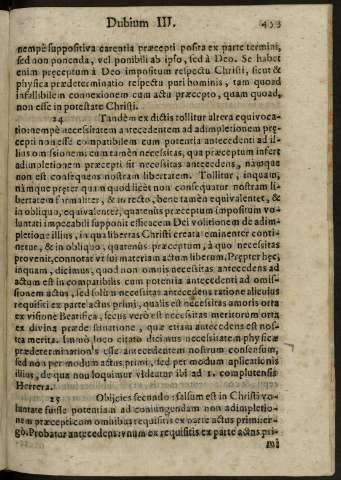 Dubium III. 453
nempè suppositiva carentia præcepti posita ex parte termini,
sed non ponenda, vel ponibili ab ipso, sed à Deo. Se habet
enim pręceptum à Deo impositum respectu Christi, sicut &
physica prædeterminatio respectu puri hominis, tam quoad
infallibilem connexionem cum actu præcepto, quam quoad,
non esse in potestate Christi.
24 Tandem ex dictis tollitur altera equivoca-
tio nempè necessitatem antecedentem ad adimpletionem prę-
cepti non esse compatibilem cum potentia antecedenti ad il-
lius omissionem; cum tamèn necessitas, qua præceptum infert
adimpletionem præcepti sit necessitas antecedens, nàmque
non est consequens nostram libertatem. Tollitur, inquam,
nàmque pręter quam quod licèt non consequatur nostram li-
bertatem formaliter, & in recto, bene tamèn equivalentèr, &
in obliquo, equivalenter, quatenùs præceptum impositum vo-
luntati impecabili supponit efficacem Dei volitionem de adim-
pletione illius, in qua libertas Christi creata eminenter conti-
netur, & in obliquo, quatenùs præceptum, à quo necessitas
provenit, connotat vt sui materiam actum liberum. Pręptèr hęc,
inquam, dicimus, quod non omnis necessitas antecedens ad
actum est incompatibilis cum potentia antecedenti ad omis-
sionem actus, sed solùm necessitas antecedens ratione alicuius
requisiti ex parte actus primi, qualis est necessitas amoris orta
ex visione Beatifica, secus verò est necessitas meritorum orta
ex divina prædestinatione, quæ etiam antecedens est nos-
tra merita. Immò loco citato dicimus necessitatem physicæ
prædeterminationis esse antecedentem nostrum consensum,
sed non per modum actus primi, sed per modum aplicationis
illius, de qua non loquimur videatur ibi ad 1. complutensis
Herrera.
25 Obijcies secundo: falsum est in Christi vo-
luntate fuisse potentiam ad coniungendam non adimpletio-
nem præcepti cum omnibus requisitis ex parte actus primi: er-
gò. Probatur antecedens: vnum ex requisitis ex parte actus pri-
mi